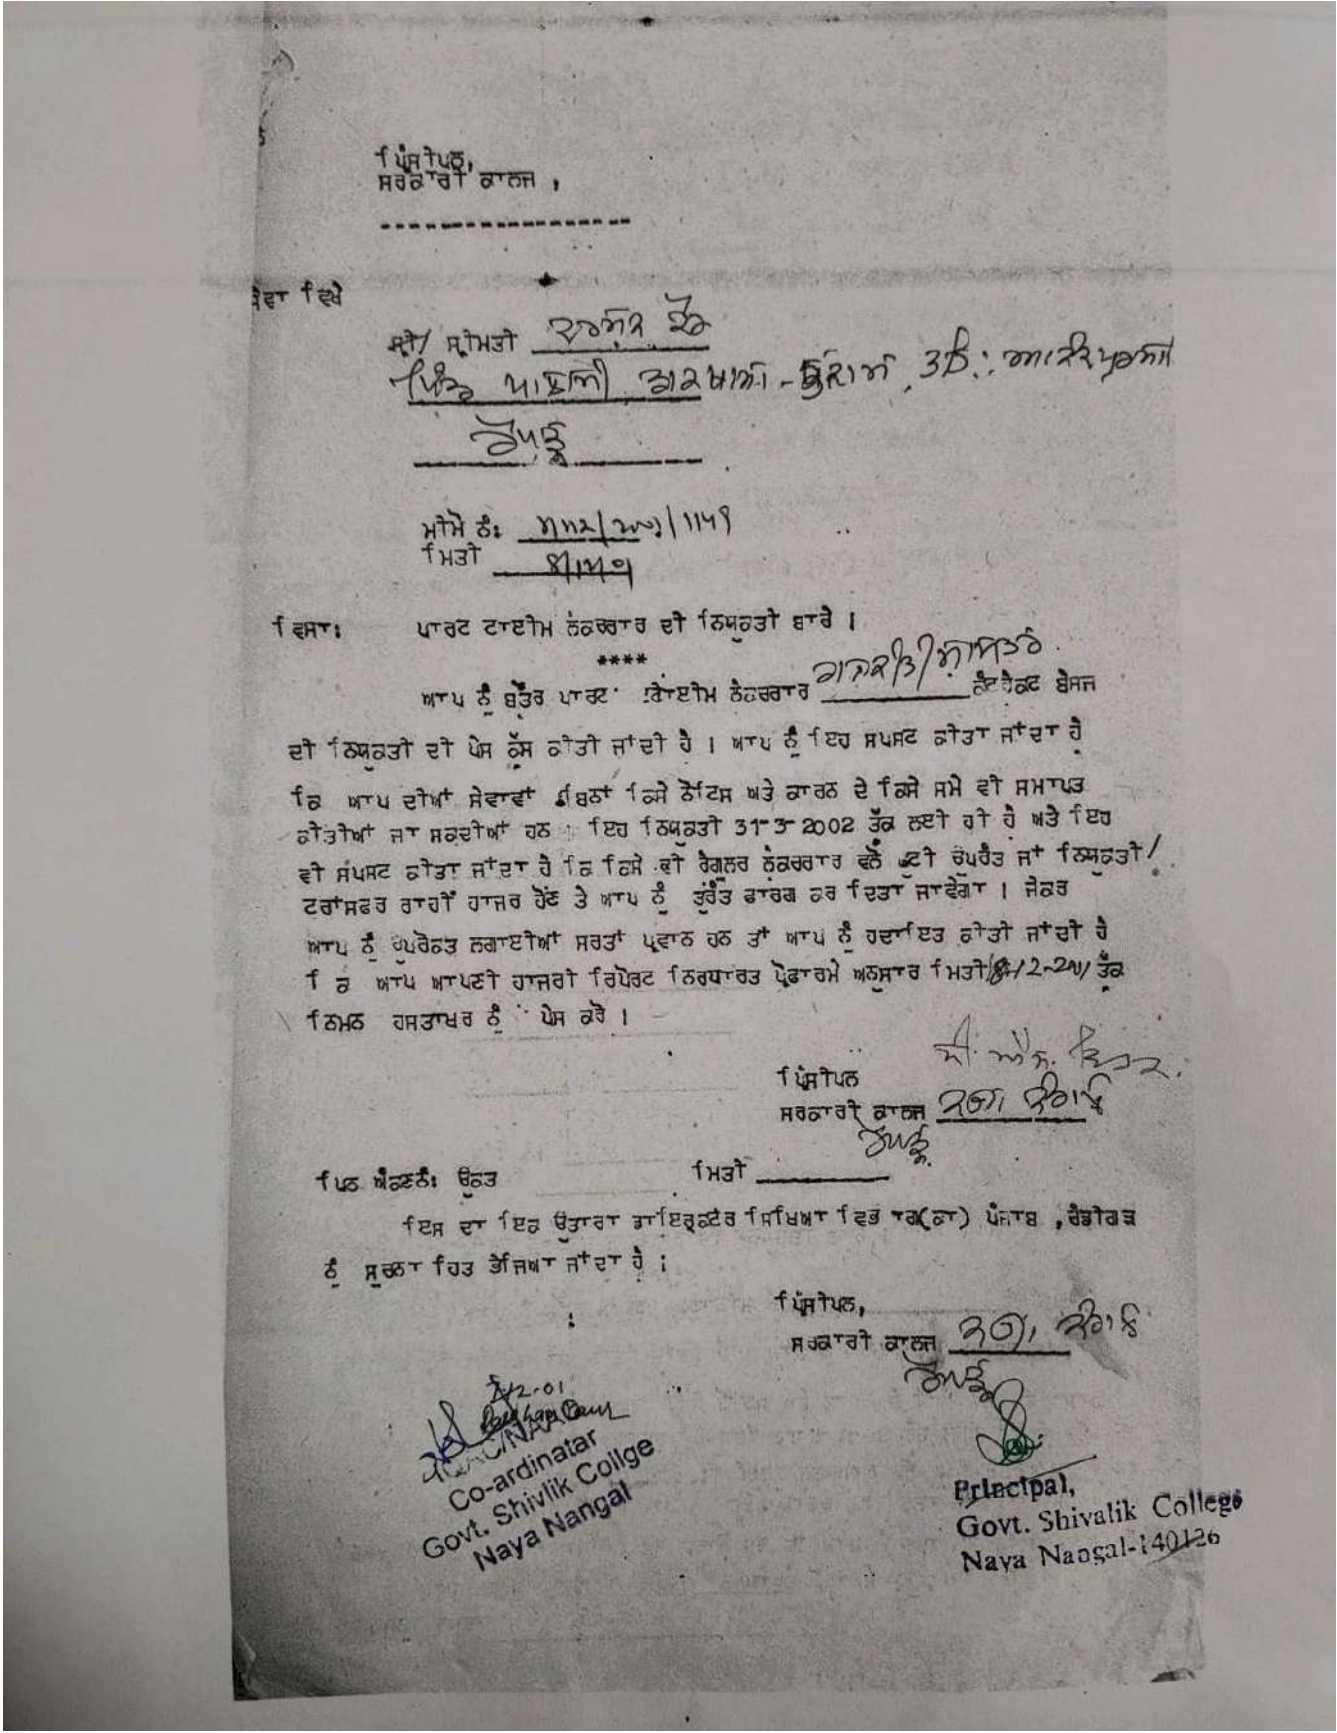 ਪ੍ਰਿੰਸੀਪਲ,
ਸਰਕਾਰੀ ਕਾਲਜ ,
------------------
ਸੇਵਾ ਵਿਖੇ
ਸ਼੍ਰੀ/ ਸ਼੍ਰੀਮਤੀ ਦਰਸ਼ਨ ਕੌਰ
ਪਿੰਡ
ਰੋਪੜ
ਮੀਮੋ ਨੰ: /1159
ਮਿਤੀ
ਵਿਸਾ: ਪਾਰਟ ਟਾਈਮ ਲੈਕਚਰਾਰ ਦੀ ਨਿਯੁਕਤੀ ਬਾਰੇ ।
****
ਆਪ ਨੂੰ ਬਤੌਰ ਪਾਰਟ ਟਾਈਮ ਲੈਕਚਰਾਰ ਰਾਜਨੀਤੀ ਸ਼ਾਸਤਰ ਕੰਟਰੈਕਟ ਬੇਸਜ
ਦੀ ਨਿਯੁਕਤੀ ਦੀ ਪੇਸ ਕੱਸ ਕੀਤੀ ਜਾਂਦੀ ਹੈ । ਆਪ ਨੂੰ ਇਹ ਸਪਸਟ ਕੀਤਾ ਜਾਂਦਾ ਹੈ
ਕਿ ਆਪ ਦੀਆਂ ਸੇਵਾਵਾਂ ਬਿਨਾਂ ਕਿਸੇ ਨੋਟਿਸ ਅਤੇ ਕਾਰਨ ਦੇ ਕਿਸੇ ਸਮੇ ਵੀ ਸਮਾਪਤ
ਕੀਤੀਆਂ ਜਾ ਸਕਦੀਆਂ ਹਨ । ਇਹ ਨਿਯੁਕਤੀ 31-3-2002 ਤੱਕ ਲਈ ਹੀ ਹੈ ਅਤੇ ਇਹ
ਵੀ ਸਪਸਟ ਕੀਤਾ ਜਾਂਦਾ ਹੈ ਕਿ ਕਿਸੇ ਵੀ ਰੈਗੂਲਰ ਲੈਕਚਰਾਰ ਵਲੋਂ ਛੁਟੀ ਉਪਰੰਤ ਜਾਂ ਨਿਯੁਕਤੀ/
ਟਰਾਂਸਫਰ ਰਾਹੀਂ ਹਾਜਰ ਹੋਣ ਤੇ ਆਪ ਨੂੰ ਤੁਰੰਤ ਫਾਰਗ ਕਰ ਦਿਤਾ ਜਾਵੇਗਾ । ਜੇਕਰ
ਆਪ ਨੂੰ ਉਪਰੋਕਤ ਲਗਾਈਆਂ ਸਰਤਾਂ ਪ੍ਰਵਾਨ ਹਨ ਤਾਂ ਆਪ ਨੂੰ ਹਦਾਇਤ ਕੀਤੀ ਜਾਂਦੀ ਹੈ
ਕਿ ਆਪ ਆਪਣੀ ਹਾਜਰੀ ਰਿਪੋਰਟ ਨਿਰਧਾਰਤ ਪ੍ਰੋਫਾਰਮੇ ਅਨੁਸਾਰ ਮਿਤੀ ਤੱਕ
ਨਿਮਨ ਹਸਤਾਖਰ ਨੂੰ ਪੇਸ ਕਰੋ ।
ਪ੍ਰਿੰਸੀਪਲ
ਸਰਕਾਰੀ ਕਾਲਜ ਨਯਾ ਨੰਗਲ
ਰੋਪੜ
ਪਿਠ ਅੰਕਣਨੰ: ਉਕਤ ਮਿਤੀ
ਇਸ ਦਾ ਇਕ ਉਤਾਰਾ ਡਾਇਰੈਕਟਰ ਸਿਖਿਆ ਵਿਭਾਗ(ਕਾ) ਪੰਜਾਬ ,ਚੰਡੀਗੜ
ਨੂੰ ਸੂਚਨਾ ਹਿਤ ਭੇਜਿਆ ਜਾਂਦਾ ਹੈ ।
ਪ੍ਰਿੰਸੀਪਲ,
ਸਰਕਾਰੀ ਕਾਲਜ ਨਯਾ ਨੰਗਲ
ਰੋਪੜ
Co-ardinatar
Govt. Shivlik Collge
Naya Nangal
Principal,
Govt. Shivalik College
Naya Nangal-140126